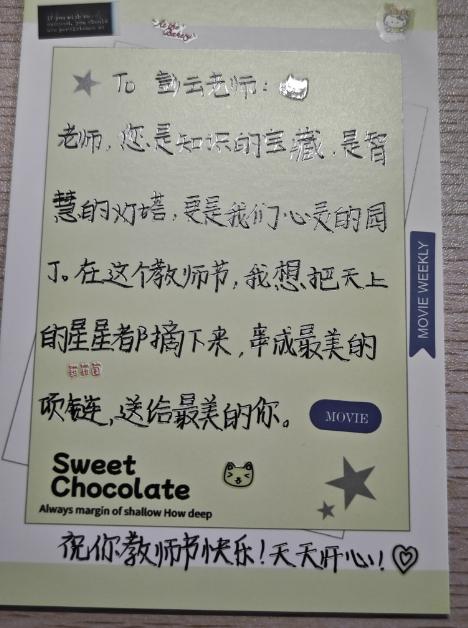 To 彭云老师：
老师，您是知识的宝藏，是智
慧的灯塔，更是我们心灵的园
丁。在这个教师节，我想把天上
的星星都摘下来，串成最美的
项链，送给最美的你。
MOVIE
MOVIE WEEKLY
Sweet
Chocolate
Always margin of shallow How deep
祝你教师节快乐！天天开心！